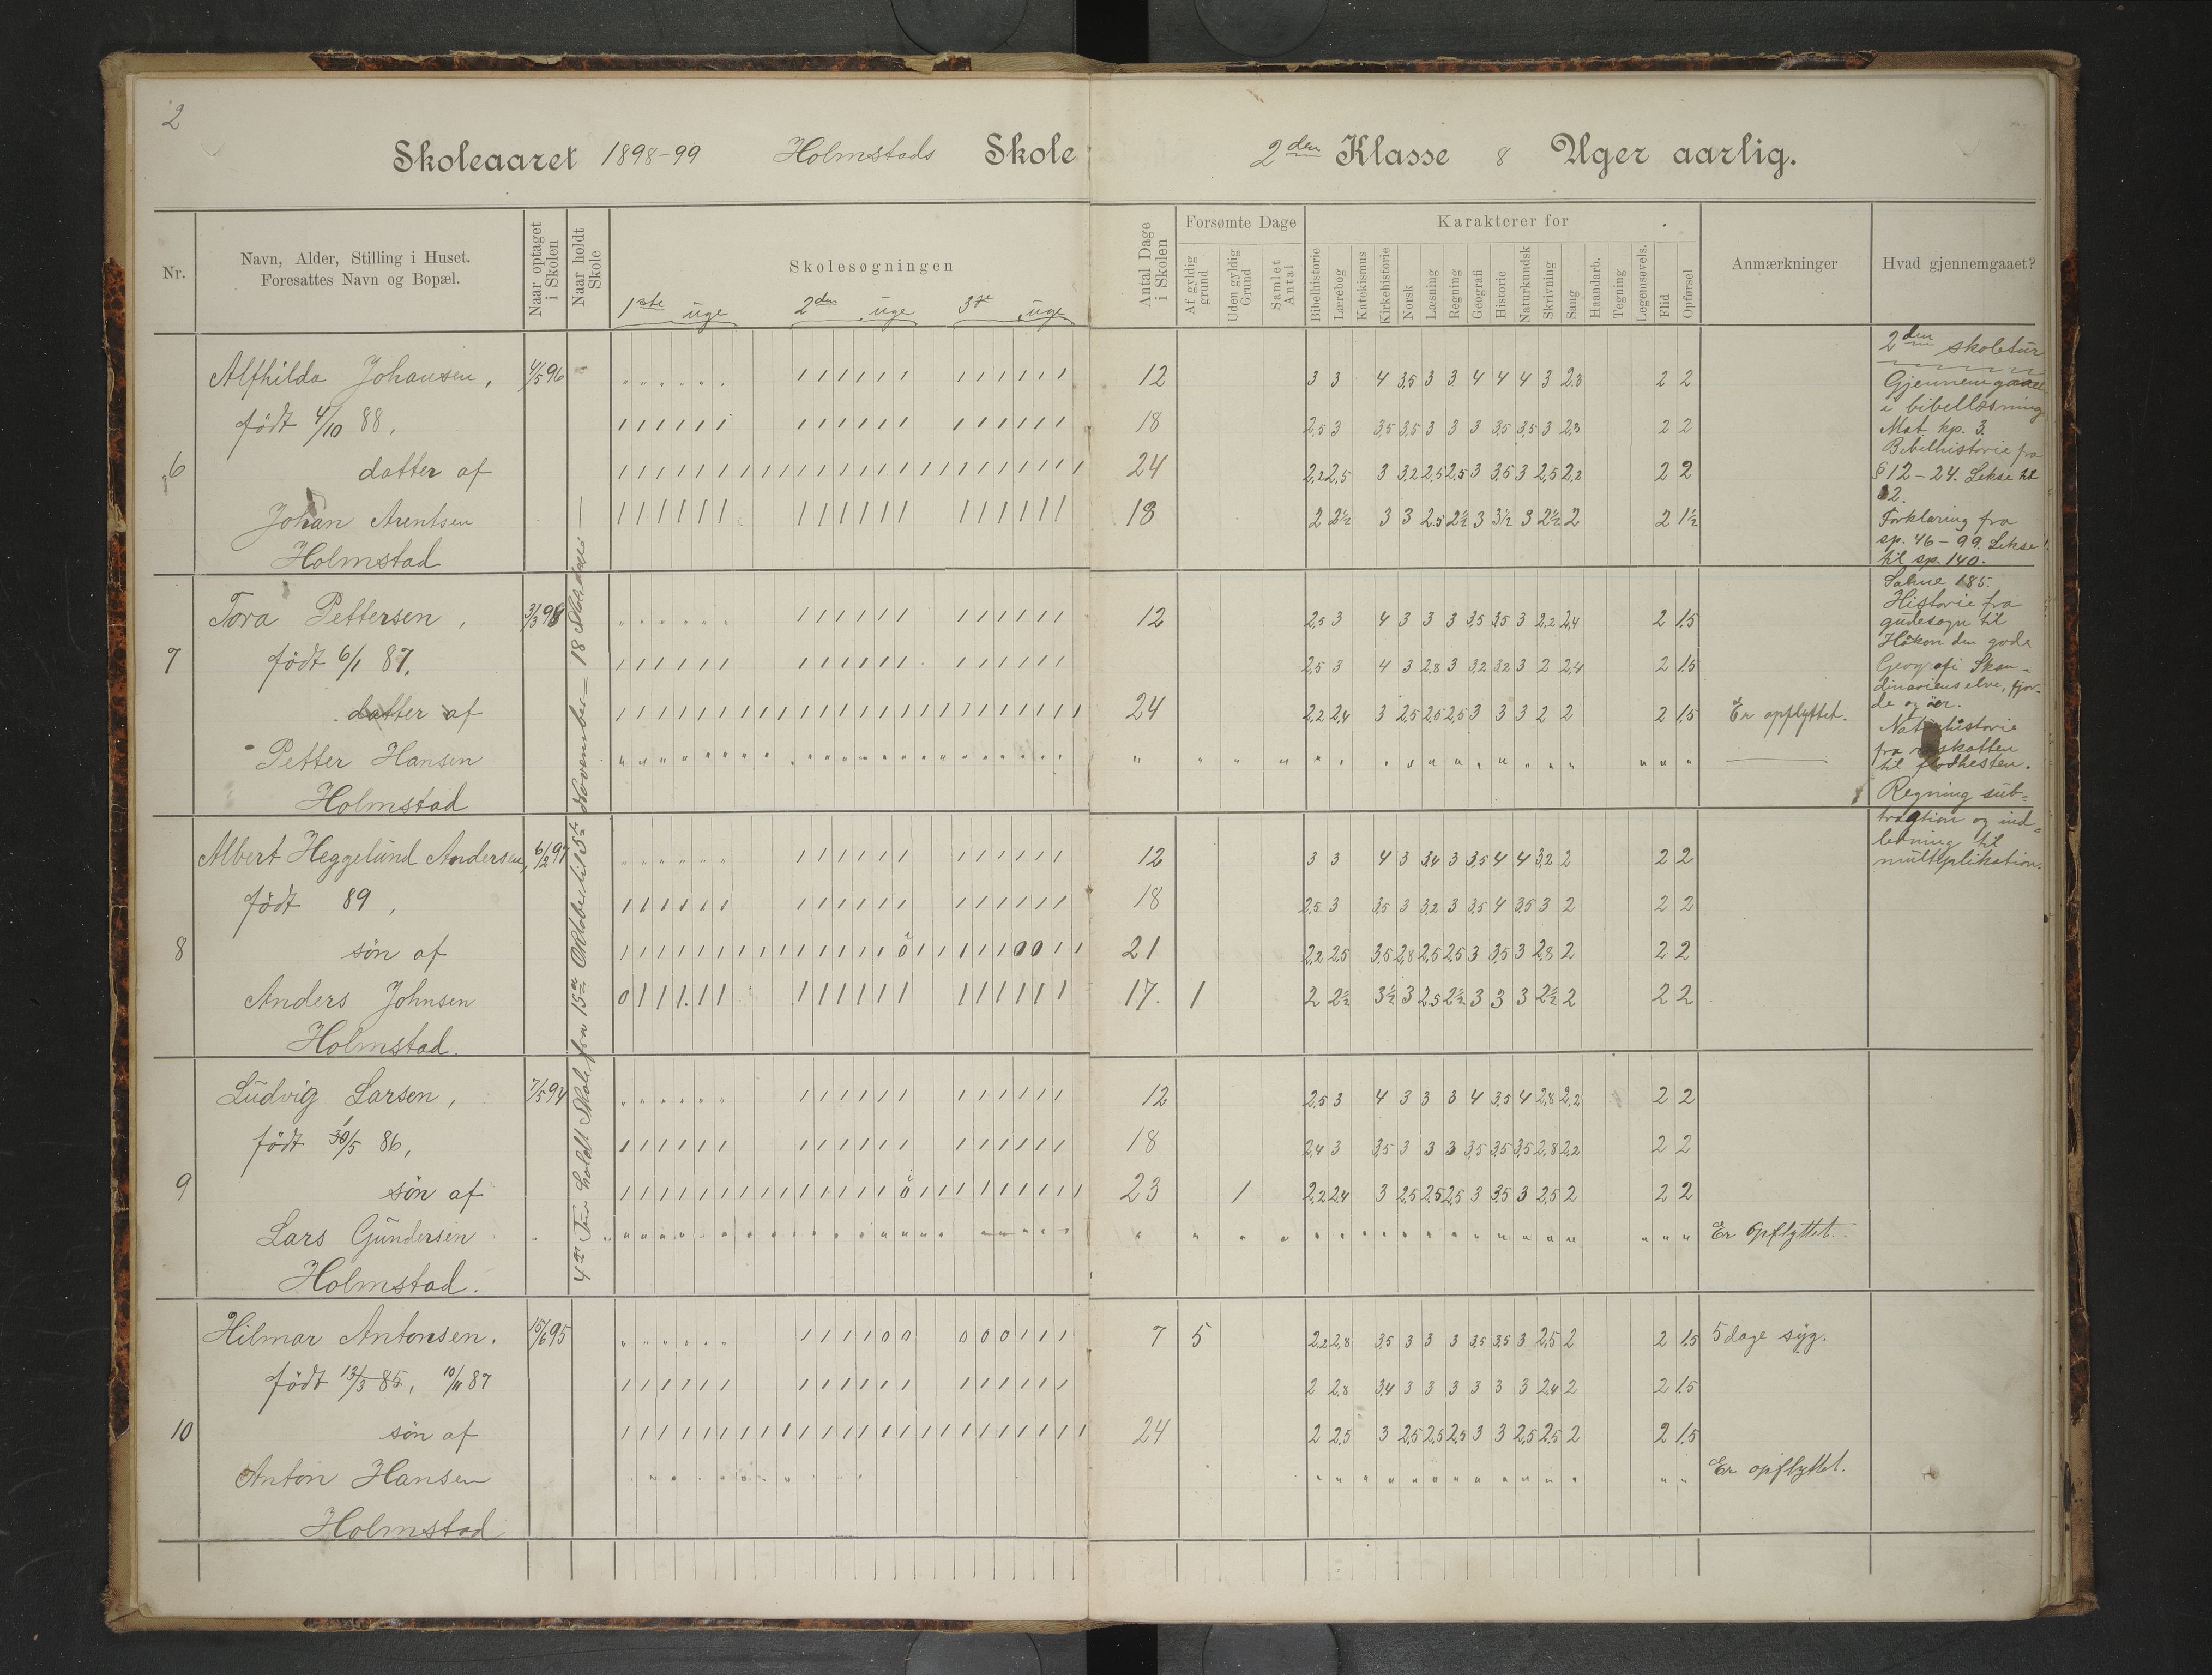 2
Skoleaaret 1898-99 Holmstads Skole
2den Klasse 8 Uger aarlig.
Nr.
Navn, Alder, Stilling i Huset.
Foresattes Navn og Bopæl.
Naar optaget
i Skolen
Naar holdt
Skole
Skolesøgningen
1ste uge 2den uge 3die uge
Antal Dage
i Skolen
Forsømte Dage
Af gyldig
grund
Uden gyldig
Grund
Samlet
Antal
Karakterer for
Bibelhistorie
Lærebog
Katekismus
Kirkehistorie
Norsk
Læsning
Regning
Geografi
Historie
Naturkundsk
Skrivning
Sang
Haandarb.
Tegning
Legemsøvels.
Flid
Opførsel
Anmærkninger
Hvad gjennemgaaet?
4de Tur holdt Skole fra 15de Oktober til 5te November = 18 Skoledage
6
Alfhilda Johansen, 4/5 96
født 4/10 88,
datter af
Johan Arentsen
Holmstad
12 3 3 4 3,5 3 3 4 4 4 3 2,8 2 2
18 2,5 3 3,5 3,5 3 3 3 3,5 3,5 3 2,3 2 2
24 2,2 2,5 3 3,2 2,5 2,5 3 3,5 3 2,5 2,2 2 2
18 2 2½ 3 3 2,5 2½ 3 3½ 3 2½ 2 2 1½
7
Tora Pettersen, 3/3 98
født 6/1 87,
datter af
Petter Hansen
Holmstad
12 2,5 3 4 3 3 3 3,5 3,5 3 2,2 2,4 2 1,5
2,5 3 4 3 2,8 3 3,2 3,2 3 2 2,4 2 1,5
24 2,2 2,4 3 2,5 2,5 2,5 3 3 3 2 2 2 1,5 Er opflyttet.
8
Albert Heggelund Andersen, 6/2 97
født 89,
søn af
Anders Johnsen
Holmstad.
12 3 3 4 3 3,4 3 3,5 4 4 3,2 2 2 2
18 2,5 3 3,5 3 3,2 3 3,5 4 3,5 3 2 2 2
21 2,2 2,5 3,5 2,8 2,5 2,5 3 3,5 3 2,8 2 2 2
17. 1 2 2½ 3½ 3 2,5 2½ 3 3 3 2½ 2 2 2
9
Ludvig Larsen, 7/5 94
født 30/5 86,
søn af
Lars Gundersen
Holmstad.
12 2,5 3 4 3 3 3 4 3,5 4 2,8 2,2 2 2
18 2,4 3 3,5 3 3 3 3,5 3,5 3,5 2,8 2,2 2 2
23 1 2,2 2,4 3 2,5 2,5 2,5 3 3,5 3 2,5 2 2 2
Er opflyttet.
10
Hilmar Antonsen. 15/6 95
født 13/3 85, 10/11 87
søn af
Anton Hansen
Holmstad
7 5 2,2 2,8 3,5 3 3 3 3,5 3,5 3 2,5 2 2 1,5 5 dage syg.
2 2,8 3,4 3 3 3 3 3 3 2,4 2 2 1,5
24 2 2,5 3 2,5 2,5 2,5 3 3 2,5 2,5 2 2 1,5
Er opflyttet.
2den skoletur
Gjennemgaaet
i bibellæsning
Mat. kp. 3.
Bibelhistorie fra
§ 12 - 24. Lekse til
Forklaring fra
sp. 46 - 99. Lekse
til sp. 140.
Salme 185.
Historie fra
gudesagn til
Håkon den gode
Geografi Skan-
dinaviens elve, fjor-
de og øer.
Naturhistorie
til flodhesten.
Regning sub-
traktion og ind-
ledning til
multiplikation.